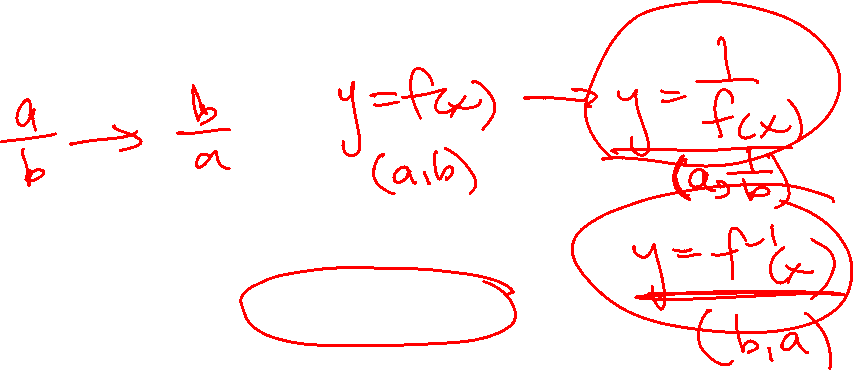 a/b → b/a y=f(x) → y=1/f(x)
(a,b) (a,1/b)
y=f⁻¹(x)
(b,a)